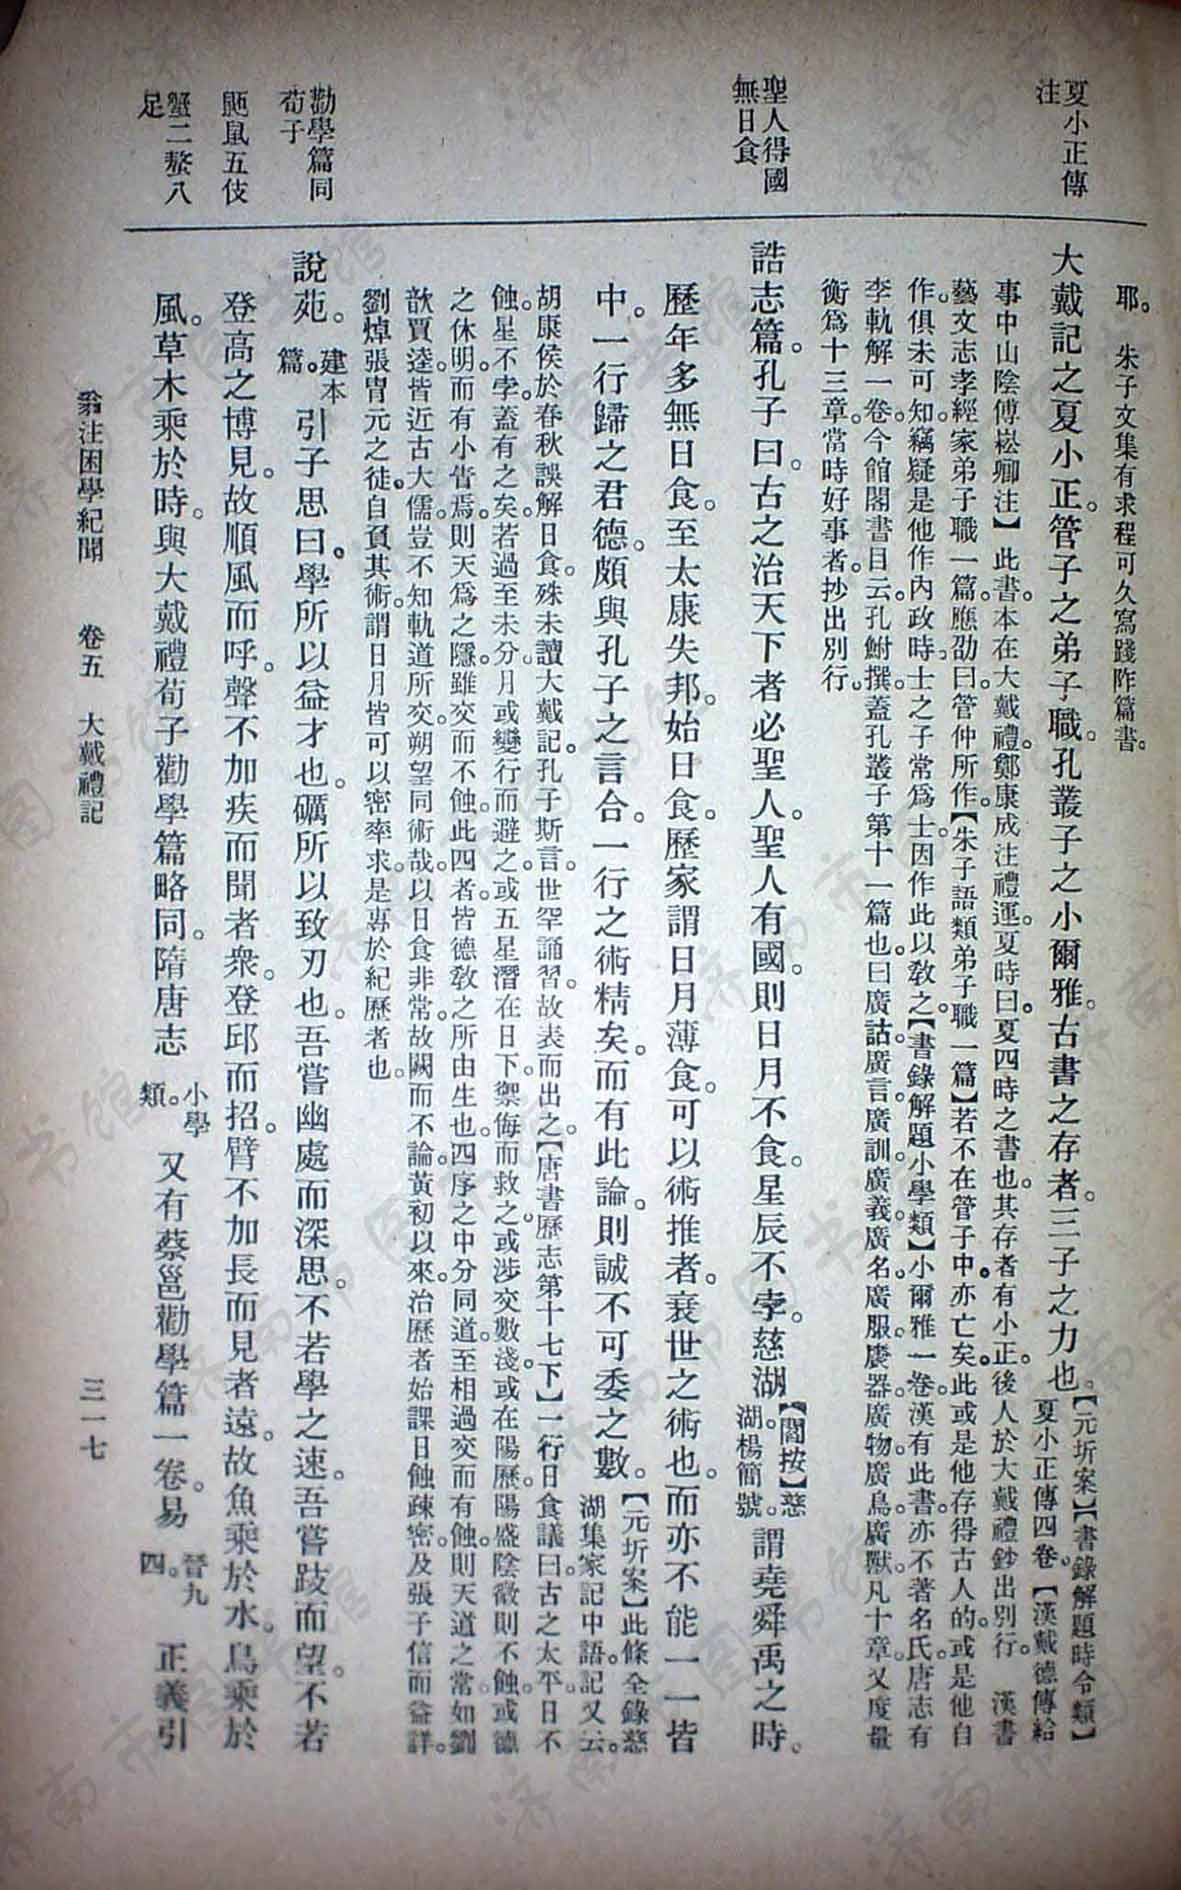 夏小正傳
注
聖人得國
無日食
勸學篇同
荀子
鼫鼠五伎
蟹二螯八
足
耶。　朱子文集有求程可久寫踐阼篇書。
大戴記之夏小正。管子之弟子職。孔叢子之小爾雅。古書之存者。三子之力也。【元圻案】【書錄解題時令類】
夏小正傳四卷。【漢戴德傳給
事中山陰傅崧卿注】此書。本在大戴禮。鄭康成注禮運。夏時曰。夏四時之書也。其存者有小正。後人於大戴禮鈔出別行。　漢書
藝文志孝經家弟子職一篇。應劭曰。管仲所作。【朱子語類弟子職一篇】若不在管子中。亦亡矣。此或是他存得古人的。或是他自
作。俱未可知。竊疑是他作內政時。士之子常爲士。因作此以敎之。【書錄解題小學類】小爾雅一卷。漢有此書。亦不著名氏。唐志有
李軌解一卷。今館閣書目云。孔鮒撰。蓋孔叢子第十一篇也。曰廣詁。廣言。廣訓。廣義。廣名。廣服。廣器。廣物。廣鳥。廣獸。凡十章。又度量
衡爲十三章。當時好事者。抄出別行。
誥志篇。孔子曰。古之治天下者必聖人。聖人有國。則日月不食。星辰不孛。慈湖【閻按】慈
湖。楊簡號。謂堯舜禹之時。
歷年多無日食。至太康失邦。始日食。歷家謂日月薄食。可以術推者。衰世之術也。而亦不能一一皆
中。一行歸之君德。頗與孔子之言合。一行之術精矣。而有此論。則誠不可委之數。【元圻案】此條全錄慈
湖集家記中語。記又云。
胡康侯於春秋誤解日食。殊未讀大戴記。孔子斯言。世罕誦習。故表而出之。【唐書歷志第十七下】一行日食議曰。古之太平。日不
蝕。星不孛。蓋有之矣。若過至未分。月或變行而避之。或五星潛在日下。禦侮而救之。或涉交數淺。或在陽歷。陽盛陰微則不蝕。或德
之休明。而有小眚焉。則天爲之隱。雖交而不蝕。此四者。皆德敎之所由生也。四序之中。分同道。至相過。交而有蝕。則天道之常。如劉
歆賈逵。皆近古大儒。豈不知軌道所交。朔望同術哉。以日食非常。故闕而不論。黃初以來。治歷者始課日蝕疎密。及張子信而益詳。
劉焯張胄元之徒。自負其術。謂日月皆可以密率求。是專於紀歷者也。
說苑。建本
篇。引子思曰。學所以益才也。礪所以致刃也。吾嘗幽處而深思。不若學之速。吾嘗跂而望。不若
登高之博見。故順風而呼。聲不加疾而聞者衆。登邱而招。臂不加長而見者遠。故魚乘於水。鳥乘於
風。草木乘於時。與大戴禮荀子勸學篇略同。隋唐志小學
類。又有蔡邕勸學篇一卷。易晉九
四。正義引
翁注困學紀聞　卷五　大戴禮記　三一七